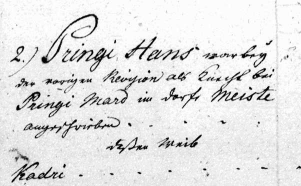 2.) Pringi Hans war bey
der vorigen Revision als Knecht bei
Pringi Mard im dorfe Meiste
angeschrieben . . . . .
deßen Weib
Kadri . . . . . . .